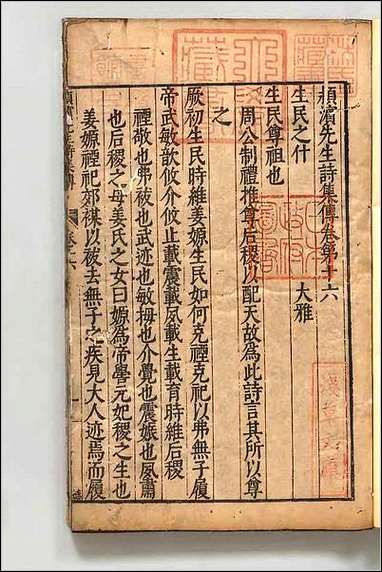 潁濱先生詩集傳卷第十六
生民之什　大雅
生民尊祖也
周公制禮推尊后稷以配天故為此詩言其所以尊
之
厥初生民時維姜嫄生民如何克禋克祀以弗無子履
帝武敏歆攸介攸止載震載夙載生載育時維后稷
禋敬也弗祓也武迹也敏拇也介覺也震娠也夙肅
也后稷之母姜氏之女曰嫄為帝嚳元妃稷之生也
姜嫄禋祀郊禖以祓去無子之疾見大人迹焉而履